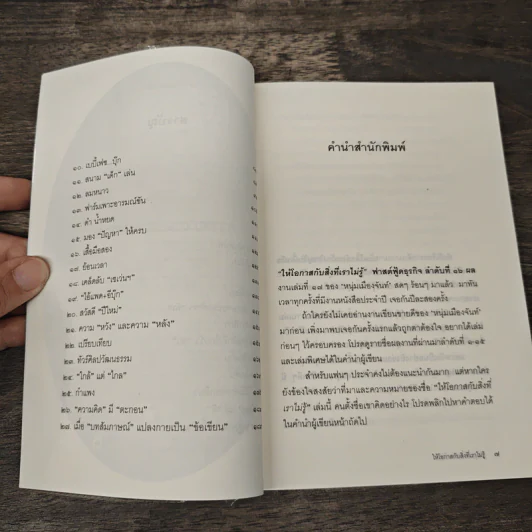 ๑๐. เบบี้เฟซ..บุ๊ก
๑๑. สนาม "เด็ก" เล่น
๑๒. ลมหนาว
๑๓. ฟาร์มเพาะอารมณ์ขัน
๑๔. ดำ น้ำหยด
๑๕. มอง "ปัญหา" ให้ครบ
๑๖. เสื้อมือสอง
๑๗. ย้อนเวลา
๑๘. เคล็ดลับ "เซเว่นฯ"
๑๙. "ไอ้แพด+อีบุ๊ก"
๒๐. สวัสดี "ปีใหม่"
๒๑. ความ "หวัง" และความ "หลัง"
๒๒. เปรียบเทียบ
๒๓. ทัวร์ศิลปวัฒนธรรม
๒๔. "ใกล้" แต่ "ไกล"
๒๕. กำแพง
๒๖. "ความคิด" มี "ตะกอน"
๒๗. เมื่อ "บทสัมภาษณ์" แปลงกายเป็น "ข้อเขียน"
คำนำสำนักพิมพ์
"ให้โอกาสกับสิ่งที่เราไม่รู้" ฟาสต์ฟู้ดธุรกิจ ลำดับที่ ๑๖ ผล
งานเล่มที่ ๑๗ ของ 'หนุ่มเมืองจันท์' สดๆ ร้อนๆ มาแล้ว มาทัน
เวลาทุกครั้งที่มีงานหนังสือประจำปี เจอกันปีละสองครั้ง
ถ้าใครยังไม่เคยอ่านงานเขียนขายดีของ 'หนุ่มเมืองจันท์'
มาก่อน เพิ่งมาพบเจอกันครั้งแรกแล้วถูกตาต้องใจ อยากได้เล่ม
ก่อนๆ ไว้ครอบครอง โปรดดูรายชื่อผลงานที่ผ่านมาลำดับที่ ๑-๑๕
และเล่มพิเศษได้ในคำนำผู้เขียน
สำหรับแฟนๆ ประจำคงไม่ต้องแนะนำกันมาก แต่หากใคร
ยังข้องใจสงสัยว่าที่มาและความหมายของชื่อ "ให้โอกาสกับสิ่งที่
เราไม่รู้" เล่มนี้ คนตั้งชื่อเขาคิดอย่างไร โปรดพลิกไปหาคำตอบได้
ในคำนำผู้เขียนหน้าถัดไป
ให้โอกาสกับสิ่งที่เราไม่รู้ ๗